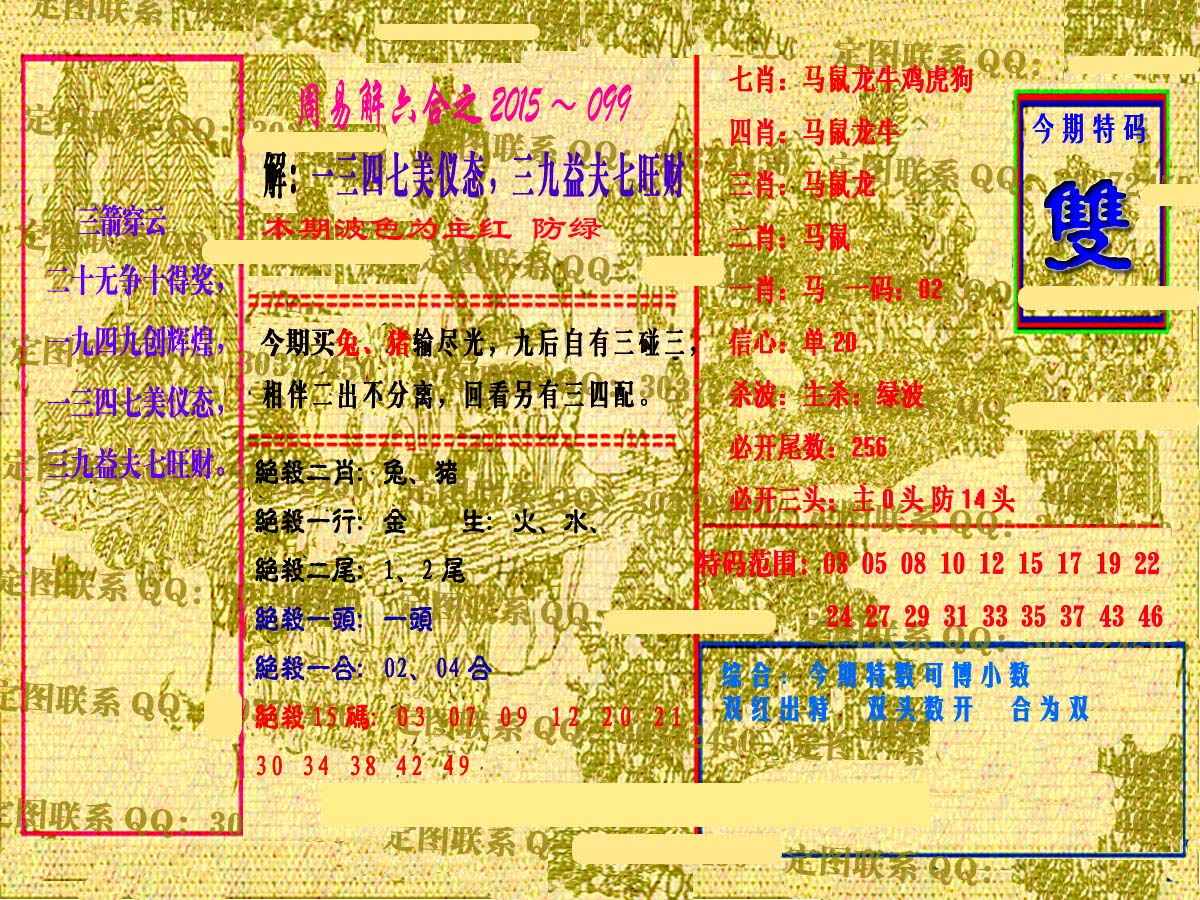 周易解六合之 2015～099
解：一三四七美仪态，三九益夫七旺财
本期波色为主红 防绿
三箭穿云
二十无争十得奖，
一九四九创辉煌，
一三四七美仪态，
三九益夫七旺财。
今期买兔、猪输尽光，九后自有三碰三，
相伴二出不分离，回看另有三四配。
絕殺二肖：兔、猪
絕殺一行：金 生：火、水、
絕殺二尾：1、2尾
絕殺一頭：一頭
絕殺一合：02、04合
絕殺15碼：03 07 09 12 20 21
30 34 38 42 49
七肖：马鼠龙牛鸡虎狗
四肖：马鼠龙牛
三肖：马鼠龙
二肖：马鼠
一肖：马 一码：02
信心：单20
杀波：主杀：绿波
必开尾数：256
必开三头：主0头防14头
今期特码
雙
特码范围：03 05 08 10 12 15 17 19 22
24 27 29 31 33 35 37 43 46
综合：今期特数可博小数
双红出特，双头数开 合为双
定图联系 QQ：